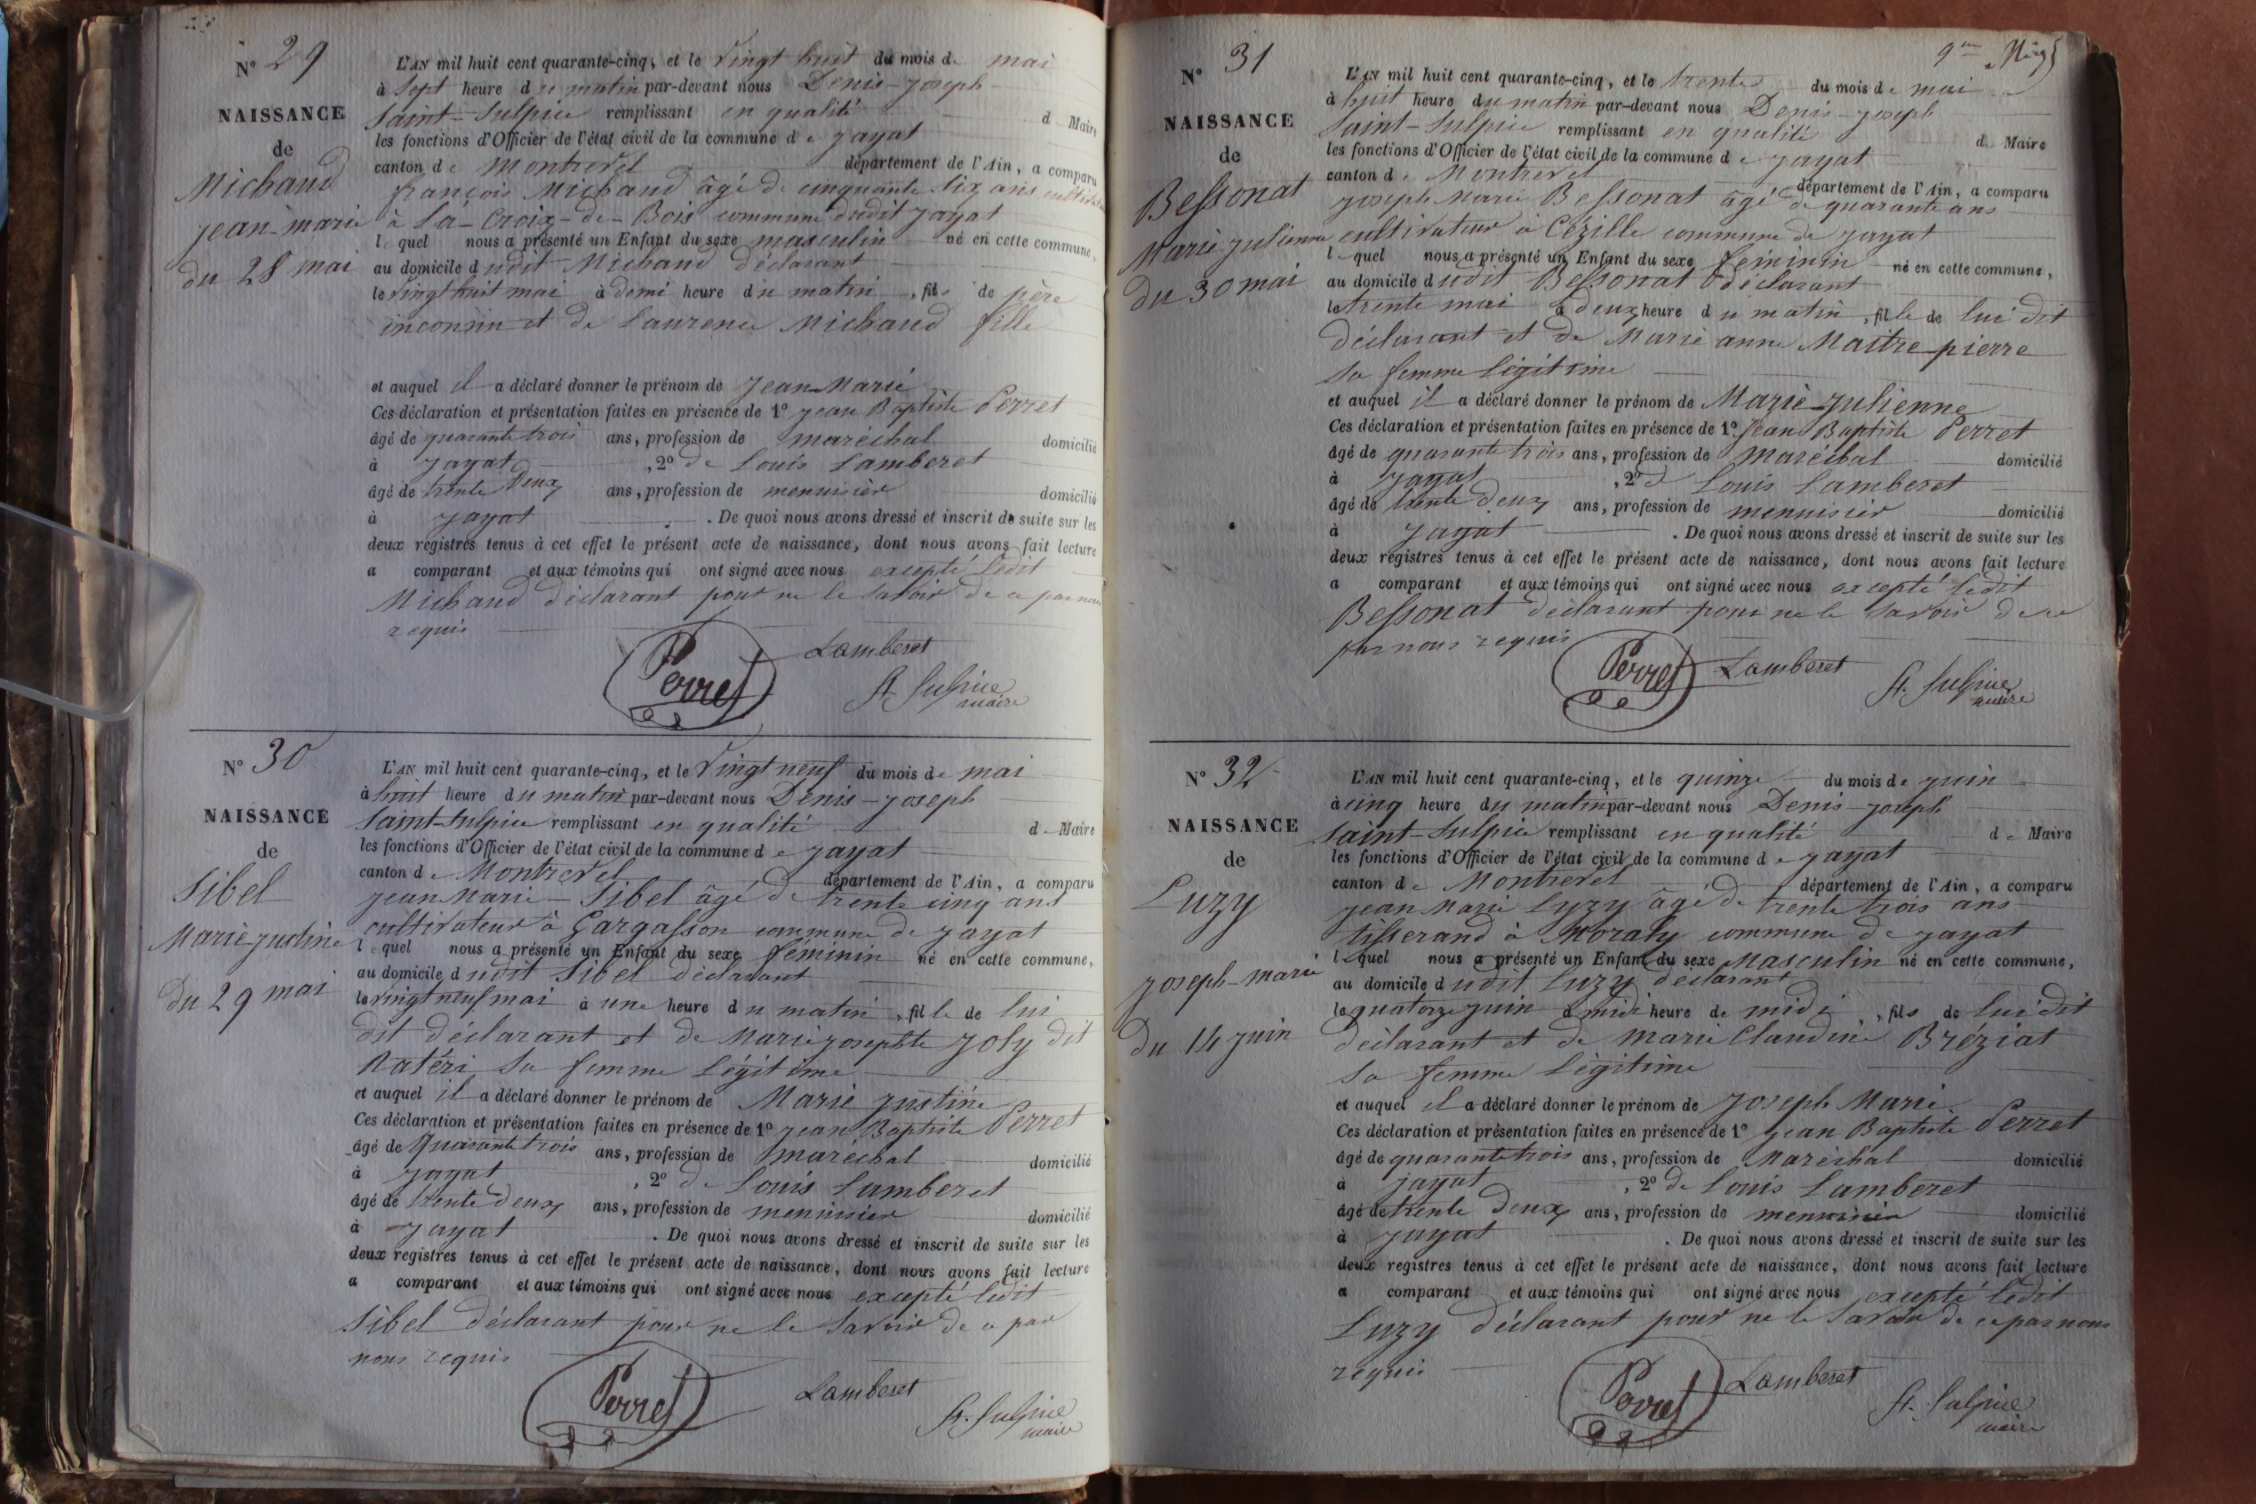 N° 29
NAISSANCE
de
Michaud
jean-marie
du 28 mai
L'AN mil huit cent quarante-cinq, et le vingt huit du mois de mai
à sept heure du matin par-devant nous Denis-joseph
Saint-Sulpice remplissant en qualité de Maire
les fonctions d'Officier de l'état civil de la commune de jayat
canton de Montrevel département de l'Ain, a comparu
françois Michaud âgé de cinquante six ans cultivateur
à La-Croix-de-Bois commune dudit jayat
lequel nous a présenté un Enfant du sexe masculin né en cette commune,
au domicile dudit Michaud déclarant
le vingt huit mai à demi heure du matin, fils de père
inconnu et de Laurence Michaud fille
et auquel il a déclaré donner le prénom de Jean-Marie
Ces déclaration et présentation faites en présence de 1° jean Baptiste Perret
âgé de quarante trois ans, profession de maréchal domicilié
à jayat, 2° de Louis Lamberet
âgé de trente deux ans, profession de menuisier domicilié
à jayat. De quoi nous avons dressé et inscrit de suite sur les
deux registres tenus à cet effet le présent acte de naissance, dont nous avons fait lecture
a comparant et aux témoins qui ont signé avec nous excepté ledit
Michaud déclarant pour ne le savoir de ce par nous
requis
Perret Lamberet
St. Sulpice
maire
N° 30
NAISSANCE
de
Sibel
Marie justine
du 29 mai
L'AN mil huit cent quarante-cinq, et le vingt neuf du mois de mai
à huit heure du matin par-devant nous Denis-joseph
Saint-Sulpice remplissant en qualité de Maire
les fonctions d'Officier de l'état civil de la commune de jayat
canton de Montrevel département de l'Ain, a comparu
jean Marie Sibel âgé de trente cinq ans
cultivateur à Gargasson commune de jayat
lequel nous a présenté un Enfant du sexe féminin né en cette commune,
au domicile dudit Sibel déclarant
le vingt neuf mai à une heure du matin, fille de lui
dit déclarant et de Marie josephte Joly dit
Natéri sa femme légitime
et auquel il a déclaré donner le prénom de Marie justine
Ces déclaration et présentation faites en présence de 1° jean Baptiste Perret
âgé de quarante trois ans, profession de marechal domicilié
à jayat, 2° de Louis Lamberet
âgé de trente deux ans, profession de menuisier domicilié
à jayat. De quoi nous avons dressé et inscrit de suite sur les
deux registres tenus à cet effet le présent acte de naissance, dont nous avons fait lecture
a comparant et aux témoins qui ont signé avec nous excepté ledit
Sibel déclarant pour ne le savoir de ce par
nous requis
Perret Lamberet
St. Sulpice
maire
N° 31
NAISSANCE
de
Bessonat
Marie julienne
du 30 mai
L'AN mil huit cent quarante-cinq, et le trente du mois de mai
à huit heure du matin par-devant nous Denis-joseph
Saint-Sulpice remplissant en qualité de Maire
les fonctions d'Officier de l'état civil de la commune de jayat
canton de Montrevel département de l'Ain, a comparu
joseph Marie Bessonat âgé de quarante ans
cultivateur à Cézille commune de jayat
lequel nous a présenté un Enfant du sexe féminin né en cette commune,
au domicile dudit Bessonat déclarant
le trente mai à deux heure du matin, fille de lui dit
déclarant et de Marie anne Maitre-pierre
sa femme légitime
et auquel il a déclaré donner le prénom de Marie-julienne
Ces déclaration et présentation faites en présence de 1° Jean Baptiste Perret
âgé de quarante trois ans, profession de Maréchal domicilié
à jayat, 2° d Louis Lamberet
âgé de trente deux ans, profession de menuisier domicilié
à jayat. De quoi nous avons dressé et inscrit de suite sur les
deux registres tenus à cet effet le présent acte de naissance, dont nous avons fait lecture
a comparant et aux témoins qui ont signé avec nous excepté ledit
Bessonat déclarant pour ne le savoir de ce
par nous requis
Perret Lamberet
St. Sulpice
maire
N° 32
NAISSANCE
de
Luzy
joseph-marie
du 14 juin
L'AN mil huit cent quarante-cinq, et le quinze du mois de juin
à cinq heure du matin par-devant nous Denis-joseph
Saint-Sulpice remplissant en qualité de Maire
les fonctions d'Officier de l'état civil de la commune de jayat
canton de Montrevel département de l'Ain, a comparu
jean Marie Lyzy âgé de trente trois ans
tisserand à Moraly commune de jayat
lequel nous a présenté un Enfant du sexe Masculin né en cette commune,
au domicile dudit Luzy déclarant
le quatorze juin à midi heure de midi, fils de lui dit
déclarant et de marie Claudine Bréziat
sa femme légitime
et auquel il a déclaré donner le prénom de Joseph Marie
Ces déclaration et présentation faites en présence de 1° jean Baptiste Perret
âgé de quarante trois ans, profession de Maréchal domicilié
à jayat, 2° de Louis Lamberet
âgé de trente deux ans, profession de menuisier domicilié
à jayat. De quoi nous avons dressé et inscrit de suite sur les
deux registres tenus à cet effet le présent acte de naissance, dont nous avons fait lecture
a comparant et aux témoins qui ont signé avec nous excepté ledit
Luzy déclarant pour ne le savoir de ce par nous
requis
Perret Lamberet
St. Sulpice
maire